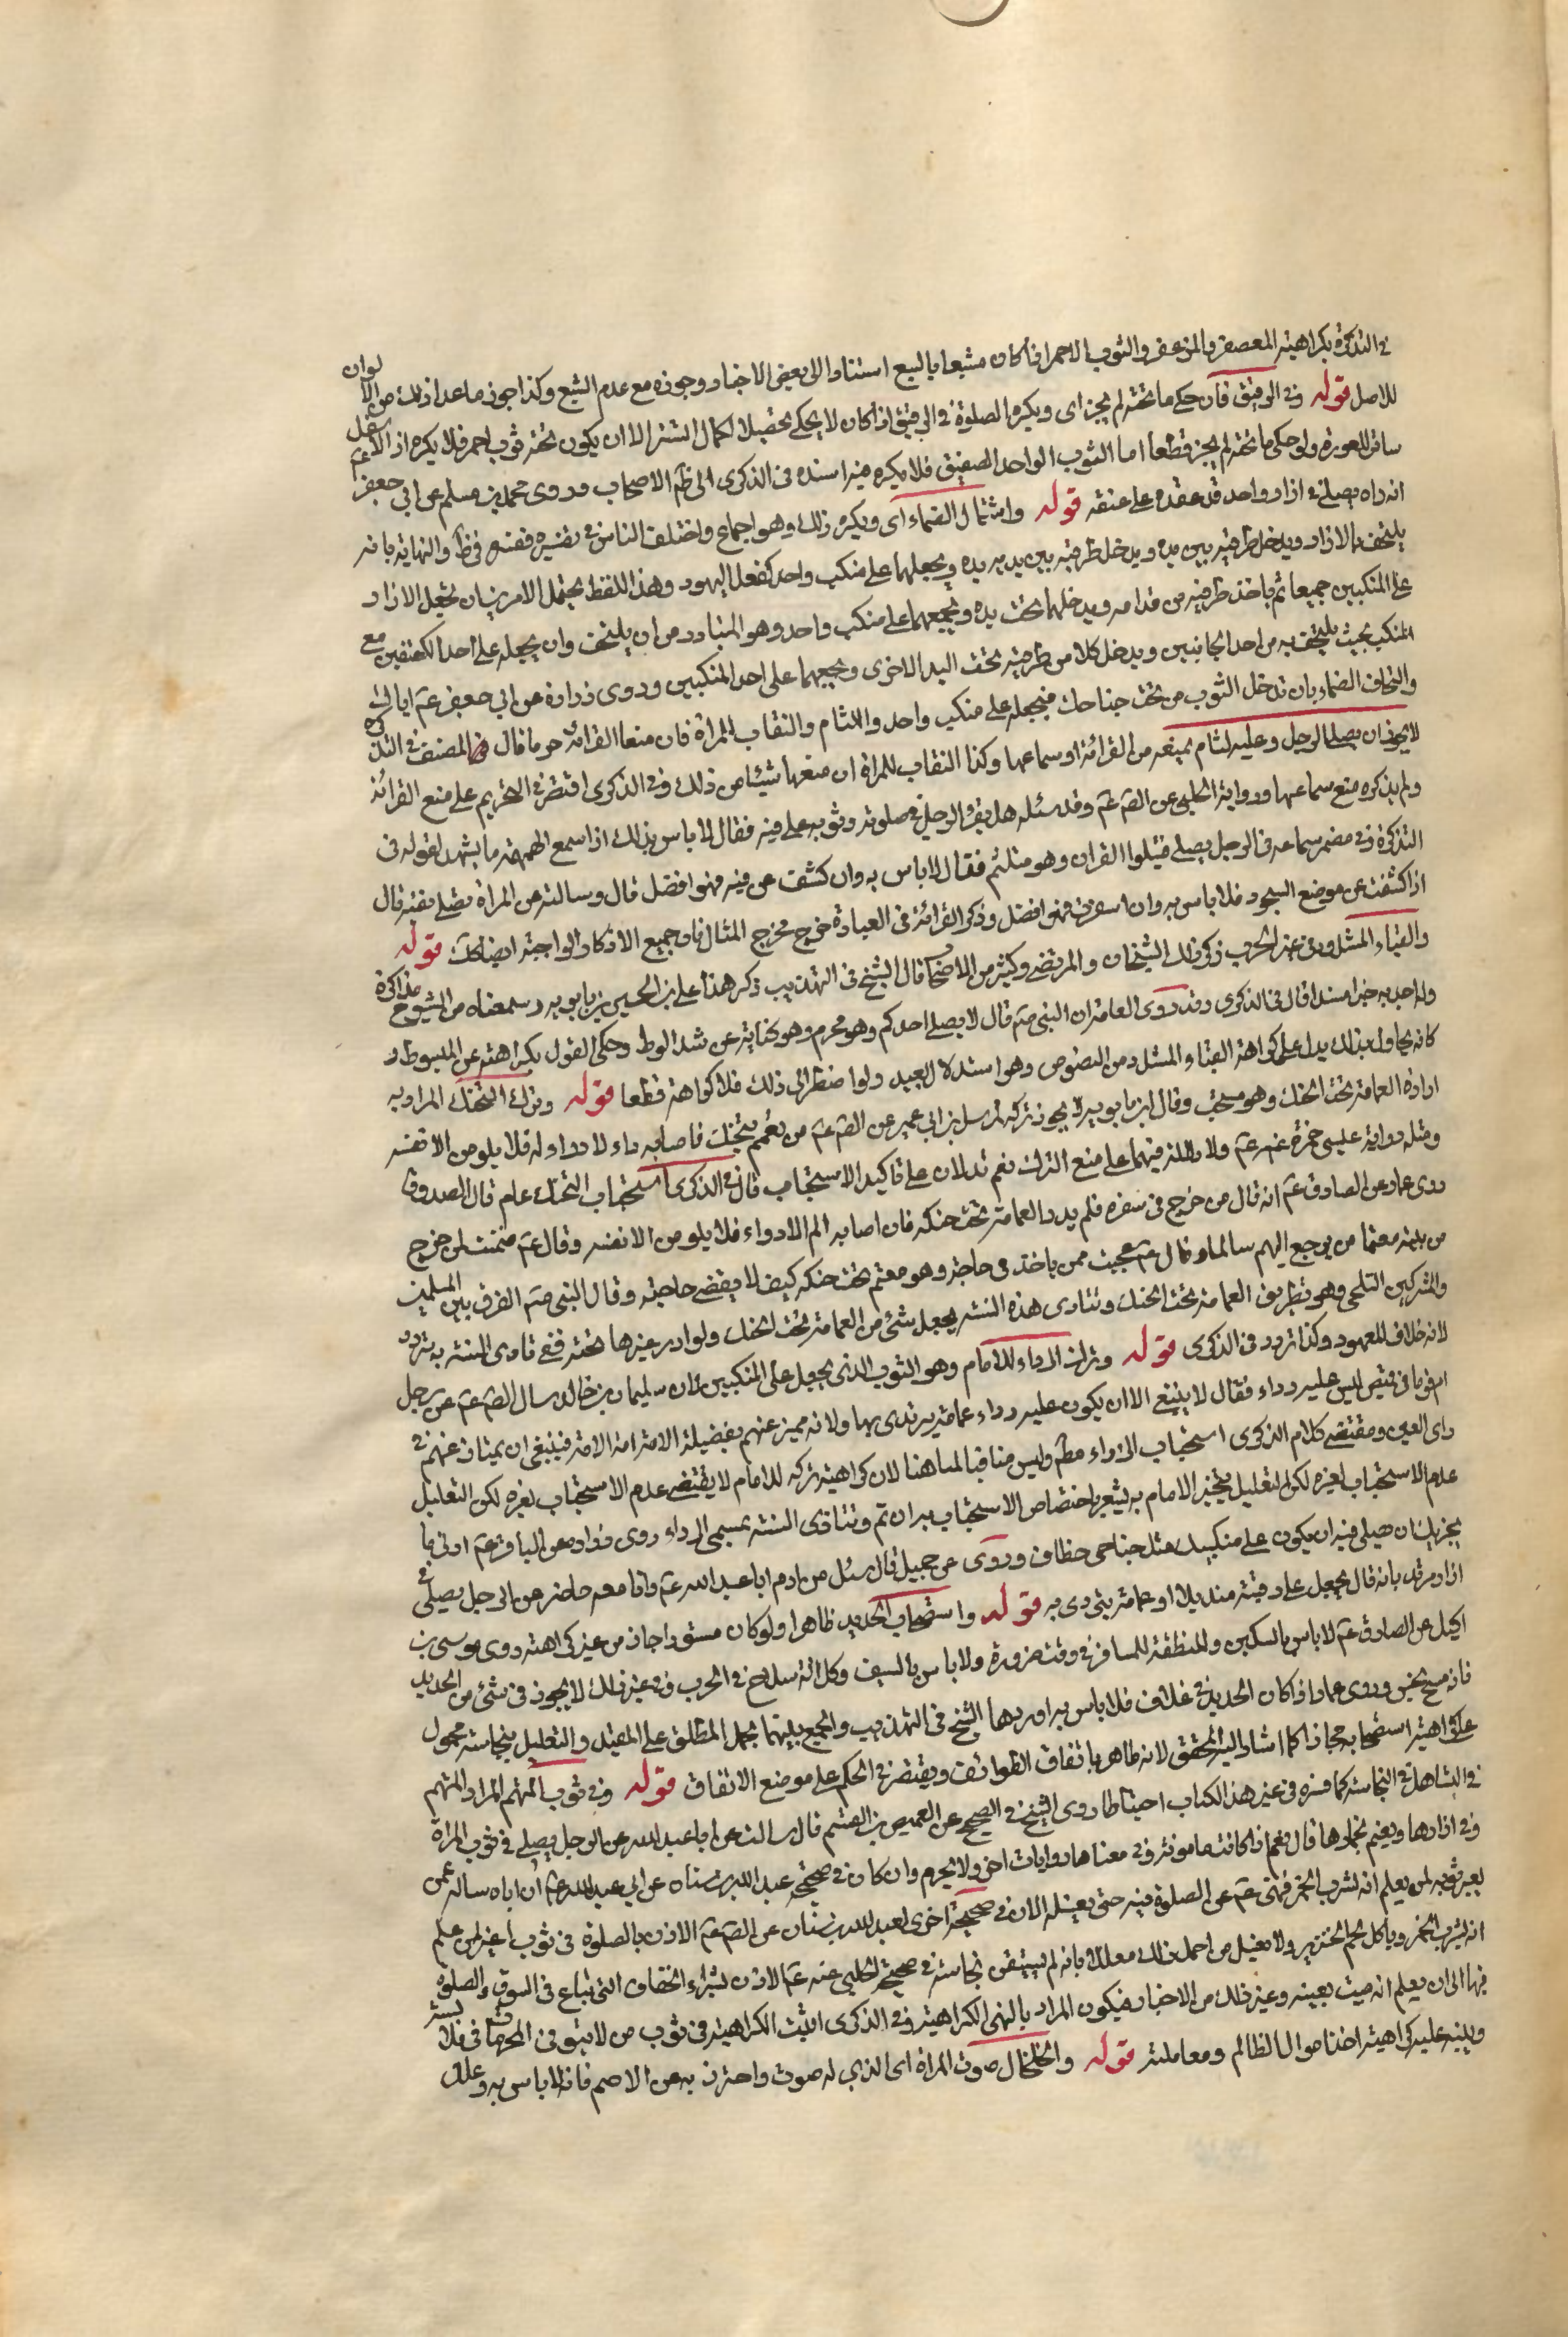 في التذكرة بكراهية المعصفر والمزعفر والثوب الاحمر اذا كان مشبعا بالصبغ استنادا الى بعض الاخبار وجوزه مع عدم الشبع وكذا جوز ما عدا ذلك من الالوان
للاصل قوله وفي الرقيق فان حكى ما تحته لم يجز اى ويكره الصلوة في الرقيق اذا كان لا يحكى تحصيلا لكمال الستر الا ان يكون تحته ثوب اخر فلا يكره اذ الاسفل
ساتر للعورة ولو حكى ما تحته لم يجز قطعا اما الثوب الواحد الصفيق فلا يكره فيه اسنده في الذكرى الى ظم الاصحاب وروى محمد بن مسلم عن ابي جعفر عم
انه راه يصلى في ازار واحد قد عقده على عنقه قوله واشتمال الصماء اى ويكره ذلك وهو اجماع واختلف الناس في تفسيره ففسره في ط والنهاية بانه
يلتحف بالازار ويدخل طرفيه بين يده ويدخل طرفيه بين يديه يده ويجعلهما على منكب واحد كفعل اليهود وهذا اللفظ يحتمل الامرين ان يجعل الازار
على المنكبين جميعا ثم ياخذ طرفيه من قدامه ويدخلهما تحت يده ويجمعهما على منكب واحد وهو المتبادر من ان يلتحف وان يجعله على احد الكتفين مع
المنكب بحيث يلتحف به من احد الجانبين ويدخل كلا من طرفيه تحت اليد الاخرى ويجمعهما على احد المنكبين وروى زرارة عن ابي جعفر عم اياك
والتحاف الصماء بان تدخل الثوب من تحت جناحك فتجعله على منكب واحد واللثام والنقاب للمراة فان منعا القرائة حرما قال المصنف في التذكرة
لا يجوز ان يصلى الرجل وعليه لثام يمنعه من القرائة او سماعها وكذا النقاب للمراة ان منعها شيئا من ذلك وفي الذكرى اقتصر في التحريم على منع القرائة
ولم يذكره منع سماعها ورواية الحلبي عن الصم عم وقد سئله هل يقرء الرجل في صلوته وثوبه على فيه فقال لا باس بذلك اذا سمع الهمهمة ما يشهد لقوله في
التذكرة وفي مضمر سماعه في الرجل يصلى فيتلوا القران وهو متلثم فقال لا باس به وان كشف عن فيه فهو افضل قال وسالته عن المراة تصلى متنقبة قال
اذا كشفت عن موضع السجود فلا باس به وان اسفرت فهو افضل وذكر القرائة في العبارة خرج مخرج المثال فان جميع الاذكار الواجبة ايضا كك قوله
والقباء المشدود في غير الحرب ذكر ذلك الشيخان والمرتضى وكثير من الاصحاب قال الشيخ في التهذيب ذكر هذا على بن الحسين بن بابويه وسمعناه من الشيوخ مذاكرة
ولم اجد به خبرا مسندا قال في الذكرى وقد روى العامة ان النبي صم قال لا يصلى احدكم وهو محزم وهو كناية عن شد الوسط وحكى القول بكراهته عن المبسوط و
كانه يحاول بذلك يدل على كراهة القباء المشدود من النصوص وهو استدلال بعيد ولو اضطر الى ذلك فلا كراهة قطعا قوله وترك التحنك المراد به
ادارة العمامة تحت الحنك وهو مستحب وقال ابن بابويه لا يجوز تركه لمرسل بن ابي عمير عن الصم عم من تعمم فلم يتحنك فاصابه داء لا دواء له فلا يلومن الا نفسه
ومثله رواية عيسى حمزة عنه عم ولا دلالة فيهما على منع الترك نعم تدلان على تاكيد الاستحباب قال في الذكرى استحباب التحنك عام قال الصدوق
روى عمار عن الصادق عم انه قال من خرج في سفره فلم يدر العمامة تحت حنكه فان اصابه الم لا دواء فلا يلومن الا نفسه وقال عم ضمنت لمن خرج
من بيته معتما ان يرجع اليهم سالما وقال عم عجبت ممن ياخذ في حاجة وهو معتم تحت حنكه كيف لا يقضى حاجته وقال النبي صم الفرق بين المسلمين
والمشركين التلحى وهو تطويق العمامة تحت الحنك وتتادى هذه السنة بجعل شئ من العمامة تحت الحنك ولو ادار غيرها تحته ففي تادى السنة به تردد
لانه خلاف المعهود وكذا تردد في الذكرى قوله وترك الرداء للامام وهو الثوب الذي يجعل على المنكبين لان سليمان بن خالد سال الصم عم عن رجل
ام قوما في قميص ليس عليه رداء فقال لا ينبغي الا ان يكون عليه رداء عمامة يرتدى بها ولانه مميز عنهم بفضيلة الامامة فينبغي ان يمتاز عنهم في
راى العين ومقتضى كلام الذكرى استحباب الرداء مطم وليس منافيا لما هنا لان كراهية تركه للامام لا يقتضي عدم الاستحباب لغيره لكن التعليل
عدم الاستحباب لغيره لكن التعليل يتخير الامام به يشعر باختصاص الاستحباب به ان تم وتتادى السنة بمسمى الرداء روى زرارة عن الباقر عم ادنى ما
يجزيك ان تصلى فيه ان يكون على منكبيك مثل جناحى خطاف وروى عن جميل قال سئل مرازم ابا عبد الله عم وانا معه حاضر عن الرجل يصلى في
ازار مرتديا به قال يجعل على رقبته منديلا او عمامة يتردى به قوله واستصحاب الحديد ظاهرا ولو كان مستورا جاز من غير كراهته روى موسى بن
اكيل عن الصادق عم لا باس بالسكين والمنطقة للمسافر في وقت ضرورة ولا باس بالسيف وكل الة سلاح في الحرب وفي غير ذلك لا يجوز في شئ من الحديد
فانه مسخ نجس وروى عمار اذا كان الحديد في غلاف فلا باس به اوردها الشيخ في التهذيب والجمع بينهما بحمل المطلق على المقيد والتعليل بنجاسته محمول
على كراهية استصحابه مجازا كما اشار اليه المحقق لانه طاهر باتفاق الطوائف ويقتصر في الحكم على موضع الاتفاق قوله وفي ثوب المتهم المراد المتهم
في التساهل في النجاسة كما فسره في غير هذا الكتاب احتياطا روى الشيخ في الصحيح عن العيص بن القسم قال سالت ابا عبد الله عن الرجل يصلى في ثوب المراة
وفي ازارها ويعتم بخمارها قال نعم اذا كانت مامونة وفي معناها روايات اخر ولا يحرم وان كان في صحيحة عبد الله بن سنان عن ابي عبد الله عم ان اباه ساله عمن
يعير ثوبه لمن يعلم انه يشرب الخمر فنهى عم عن الصلوة فيه حتى يغسله الا ان في صحيحة اخرى لعبد الله بن سنان عن الصم عم الاذن بالصلوة في ثوب اعير لمن علم
انه يشرب الخمر وياكل لحم الخنزير ولا يغسل من اجل ذلك معللا بانه لم يستيقن نجاسته في صحيحة الحلبي عنه عم الاذن بشراء الخفاف التي تباع في السوق والصلوة
فيها الى ان يعلم انه ميت بعينه وغير ذلك من الاخبار فيكون المراد بالنهى الكراهية وفي الذكرى اثبت الكراهية في ثوب من لا يتوقى المحرمات في ملابسه
ونبه عليه كراهية اخذ اموال الظالم ومعاملته قوله والخلخال صوت المراة اى الذي له صوت واحترز به عن الاصم فانه لا باس به وعلل